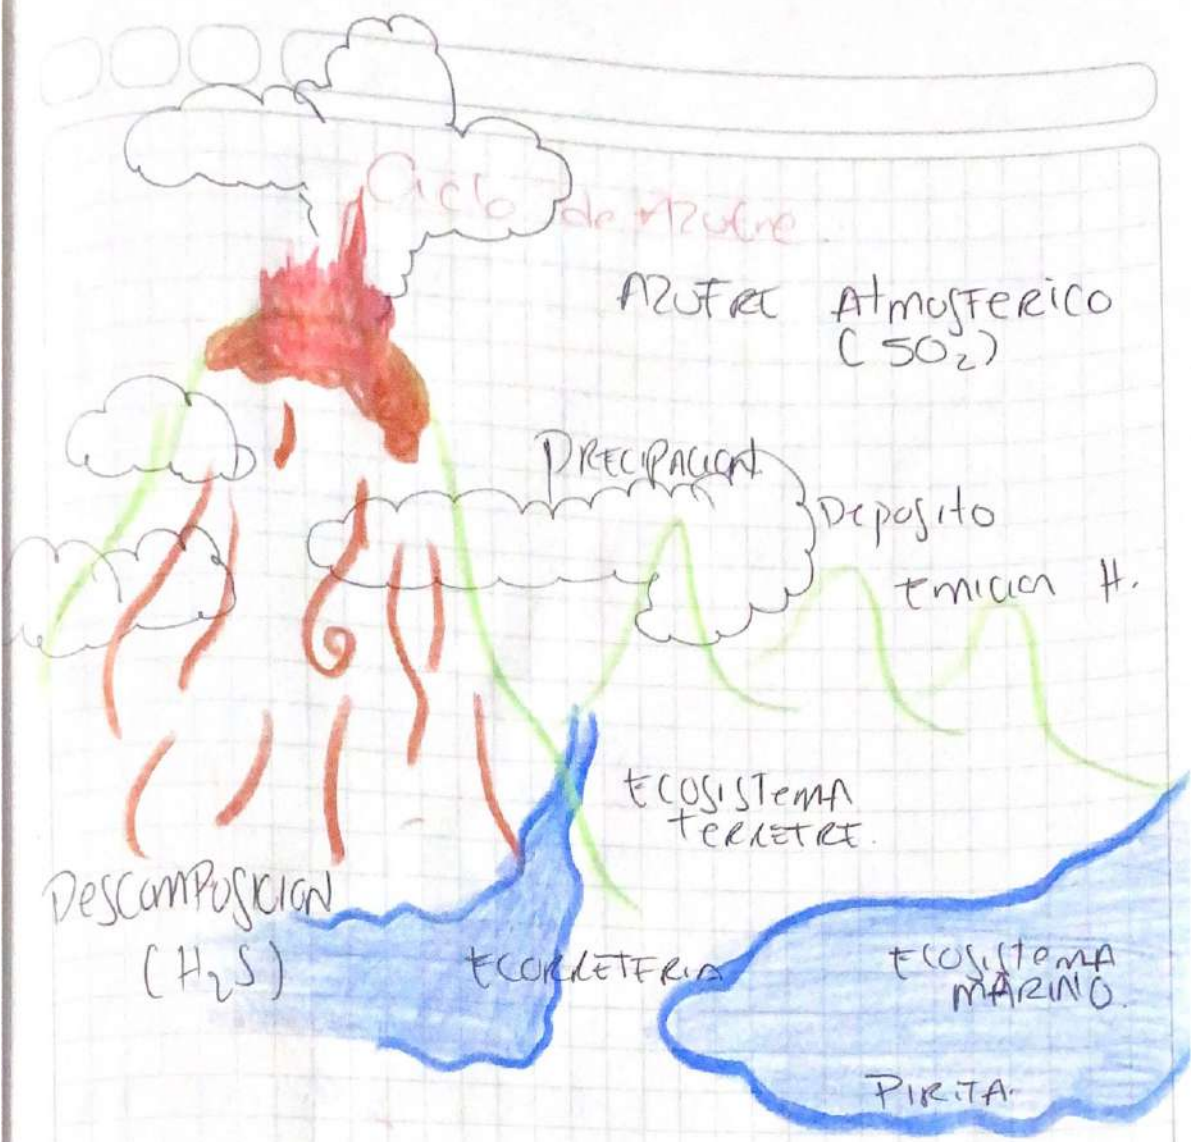 Ciclo de Azufre
AZUFRE AtmosFERICO
(SO₂)
PRECIPACION
Deposito
EMICION H.
ECOSISTEMA
TERRETRE.
DESCOMPOSICION
(H₂S)
ECORRETERIA
ECOSISTEMA
MARINO.
PIRITA.